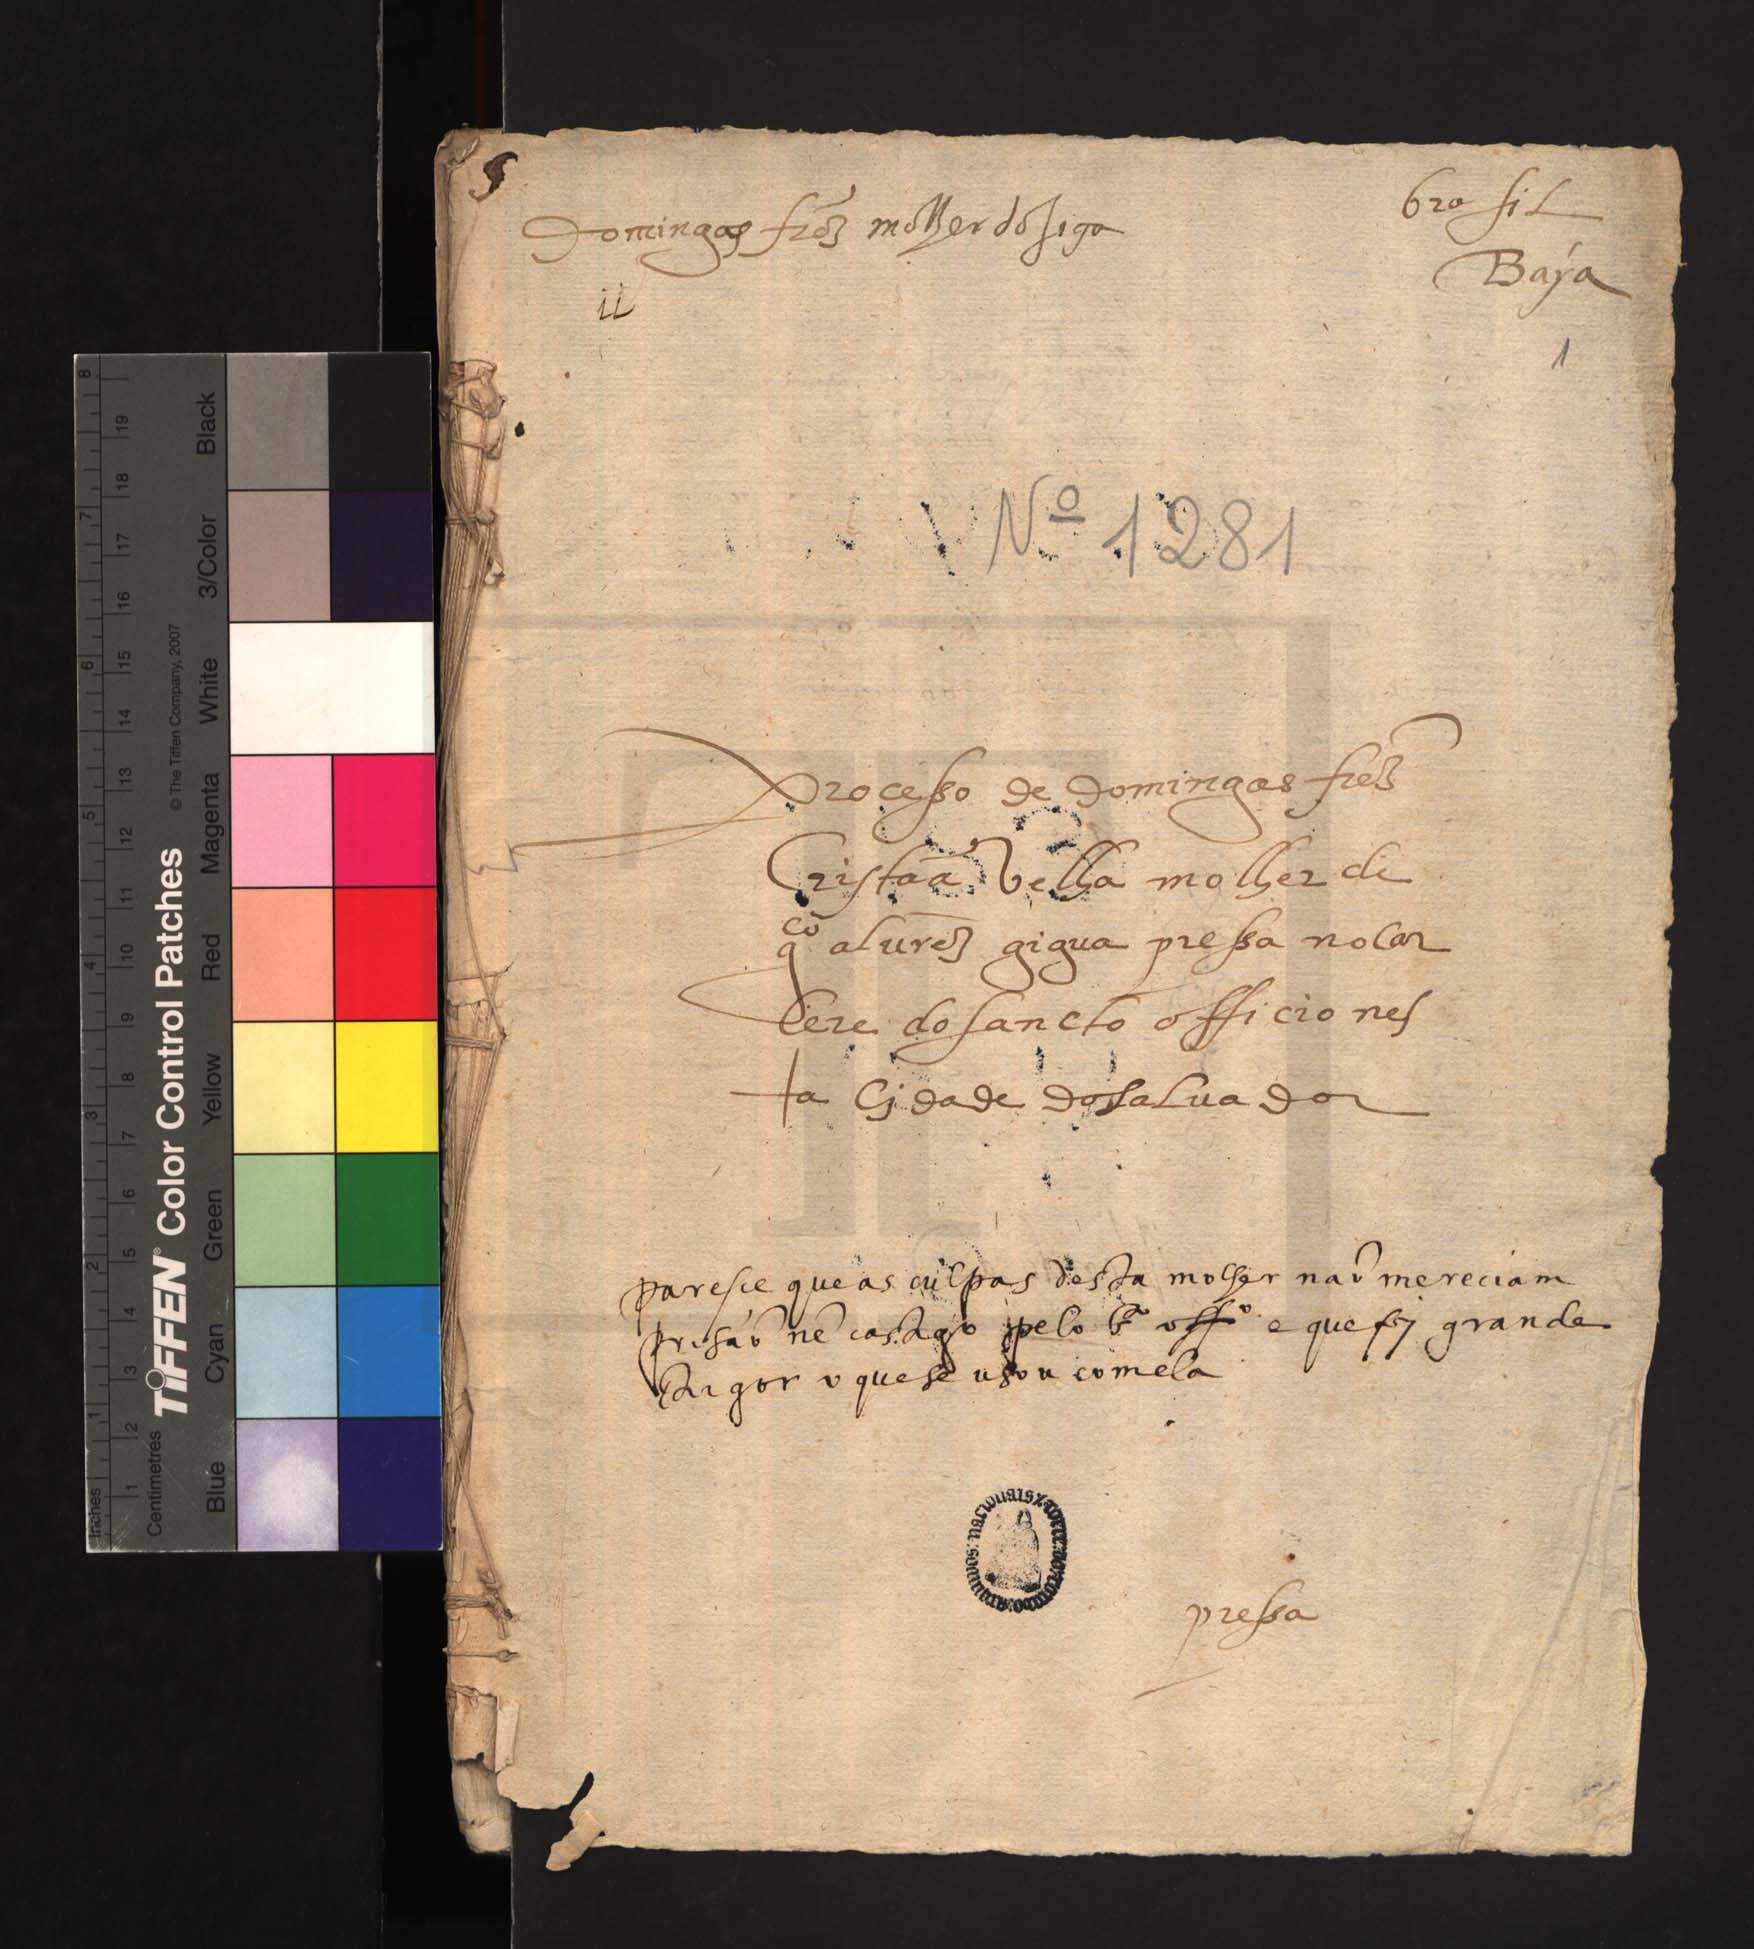 Domingas frz molher do giga
brasil
Baýa
ii
1
Nº 1281
Processo de Domingas frz
Cristaã velha molher de
gco alurez gigua pressa no car
cere do sancto officio nes
ta Cidade do saluador
paresce que as culpas desta molher naõ mereciam
prisaõ nẽ castigo pelo sto offo e que foj grande
Rigor o que se usou com ela
pressa
Inches
Centimetres
1 2 3 4 5 6 7 8
1 2 3 4 5 6 7 8 9 10 11 12 13 14 15 16 17 18 19
TIFFEN® Color Control Patches © The Tiffen Company, 2007
Blue Cyan Green Yellow Red Magenta White 3/Color Black